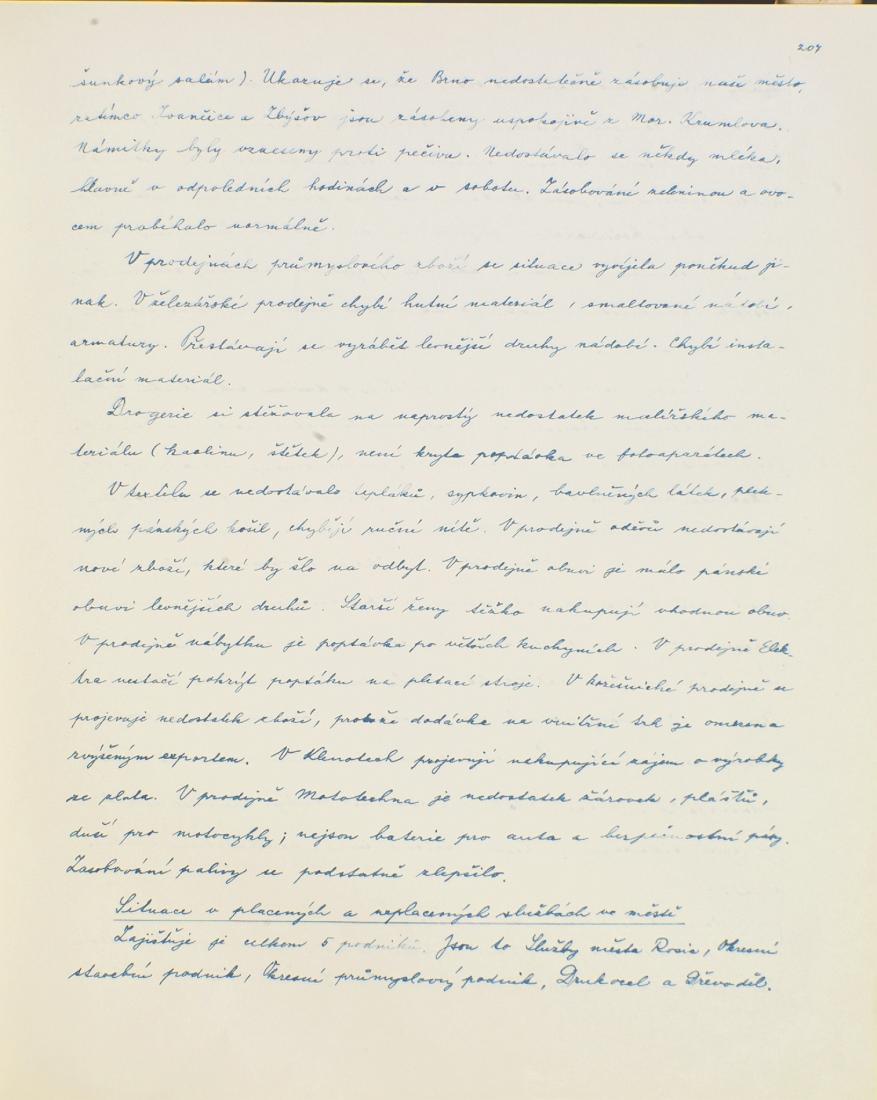 207
šunkový salám). Ukazuje se, že Brno nedostatečně zásobuje naše město,
zatímco Ivančice a Zbýšov jsou zásobeny uspokojivě z Mor. Krumlova.
Námitky byly vzneseny proti pečivu. Nedostávalo se někdy mléka,
hlavně v odpoledních hodinách a v sobotu. Zásobování zeleninou a ovo-
cem probíhalo normálně.
V prodejnách průmyslového zboží se situace vyvíjela poněkud ji-
nak. V železářské prodejně chybí hutní materiál, smaltované nádobí,
armatury. Přestávají se vyrábět levnější druhy nádobí. Chybí insta-
lační materiál.
Drogerie si stěžovala na naprostý nedostatek malířského ma-
teriálu (kaolinu, štětek), není kryta poptávka ve fotoaparátech.
V textilu se nedostávalo tepláků, sypkovin, bavlněných látek, pěk-
ných pánských košil, chybějí ruční nitě. V prodejně oděvů nedostávají
nové zboží, které by šlo na odbyt. V prodejně obuvi je málo pánské
obuvi levnějších druhů. Starší ženy těžko nakupují vhodnou obuv.
V prodejně nábytku je poptávka po větších kuchyních. V prodejně Elek-
tra nestačí pokrýt poptávku na pletací stroje. V kožešnické prodejně se
projevuje nedostatek zboží, protože dodávka na vnitřní trh je omezena
zvýšeným exportem. V Klenotech projevují nakupující zájem o výrobky
ze zlata. V prodejně Mototechna je nedostatek žárovek, plášťů,
duší pro motocykly; nejsou baterie pro auta a bezpečnostní pásy.
Zásobování palivy se podstatně zlepšilo.
Situace v placených a neplacených službách ve městě
Zajišťuje je celkem 5 podniků. Jsou to Služby města Rosic, Okresní
stavební podnik, Okresní průmyslový podnik, Drukocel a Dřevoděl.